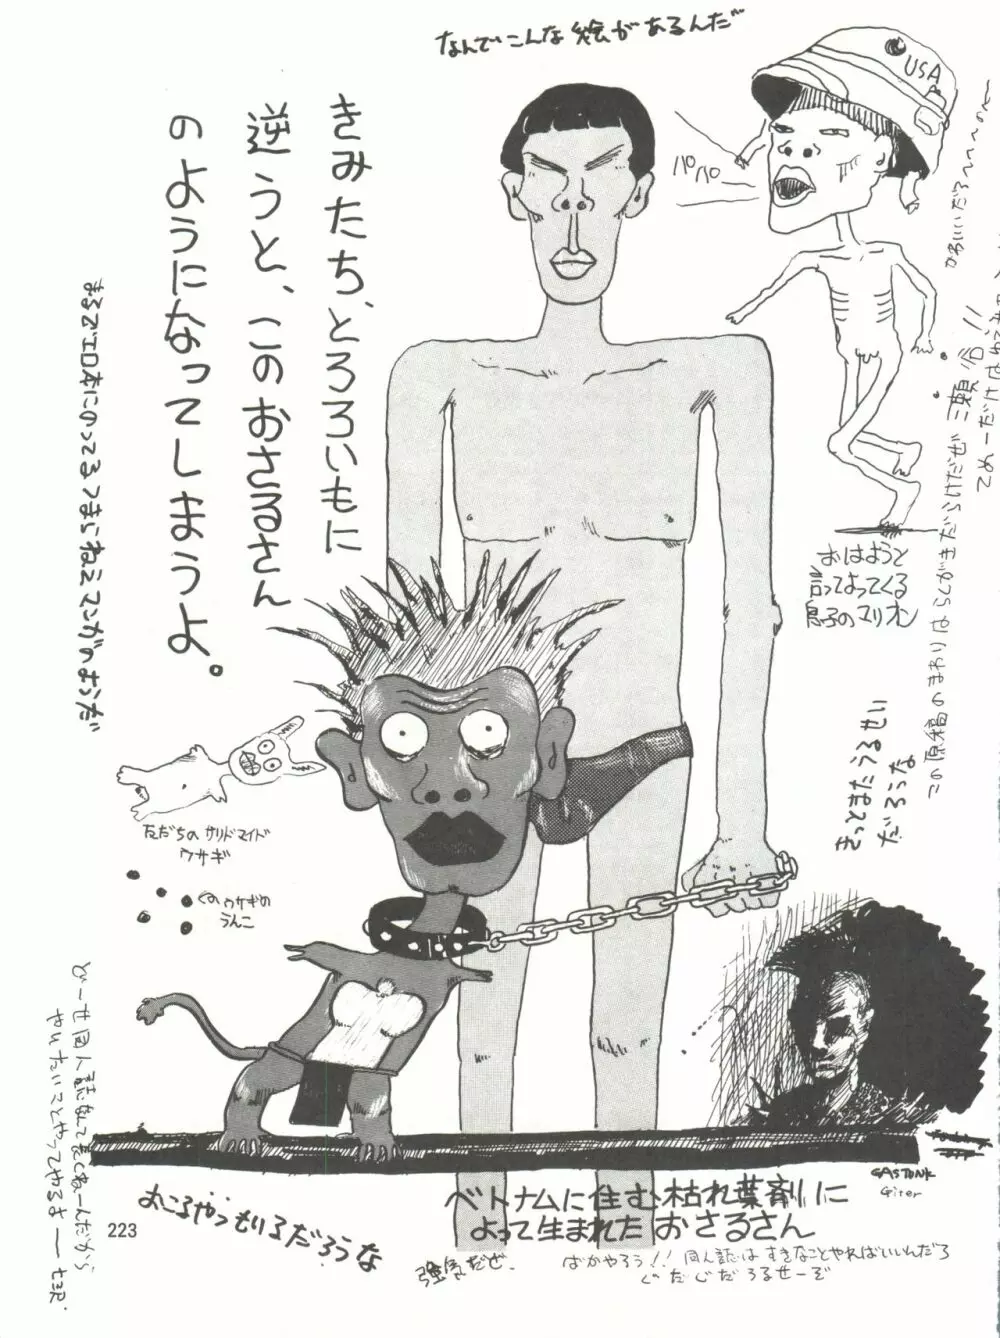 なんでこんな絵があるんだ
USA
パパパ
きみたち、とろろいもに
逆うと、このおさるさん
のようになってしまうよ。
まるでエロ本にのってるつまんねェマンガのようだ
かわいいだろ〜〜〜
おはようと
言ってよってくる
息子のマリオン
この原稿のまわりはらくがきだらけだぜ
きっとまたうるせい
だろうな
友だちの サリドマイド
ウサギ
ウサギの
うんこ
どーせ同人誌なんて
やりたいことやってやるよ
223
おころやつもいるだろうな
GASTUNK
Giter
ベトナムに住む枯れ葉剤に
よって生まれたおさるさん
強気だぜ。
ばかやろう!! 同人誌はすきなことやればいいんだろ
ぐだぐだうるせーぞ